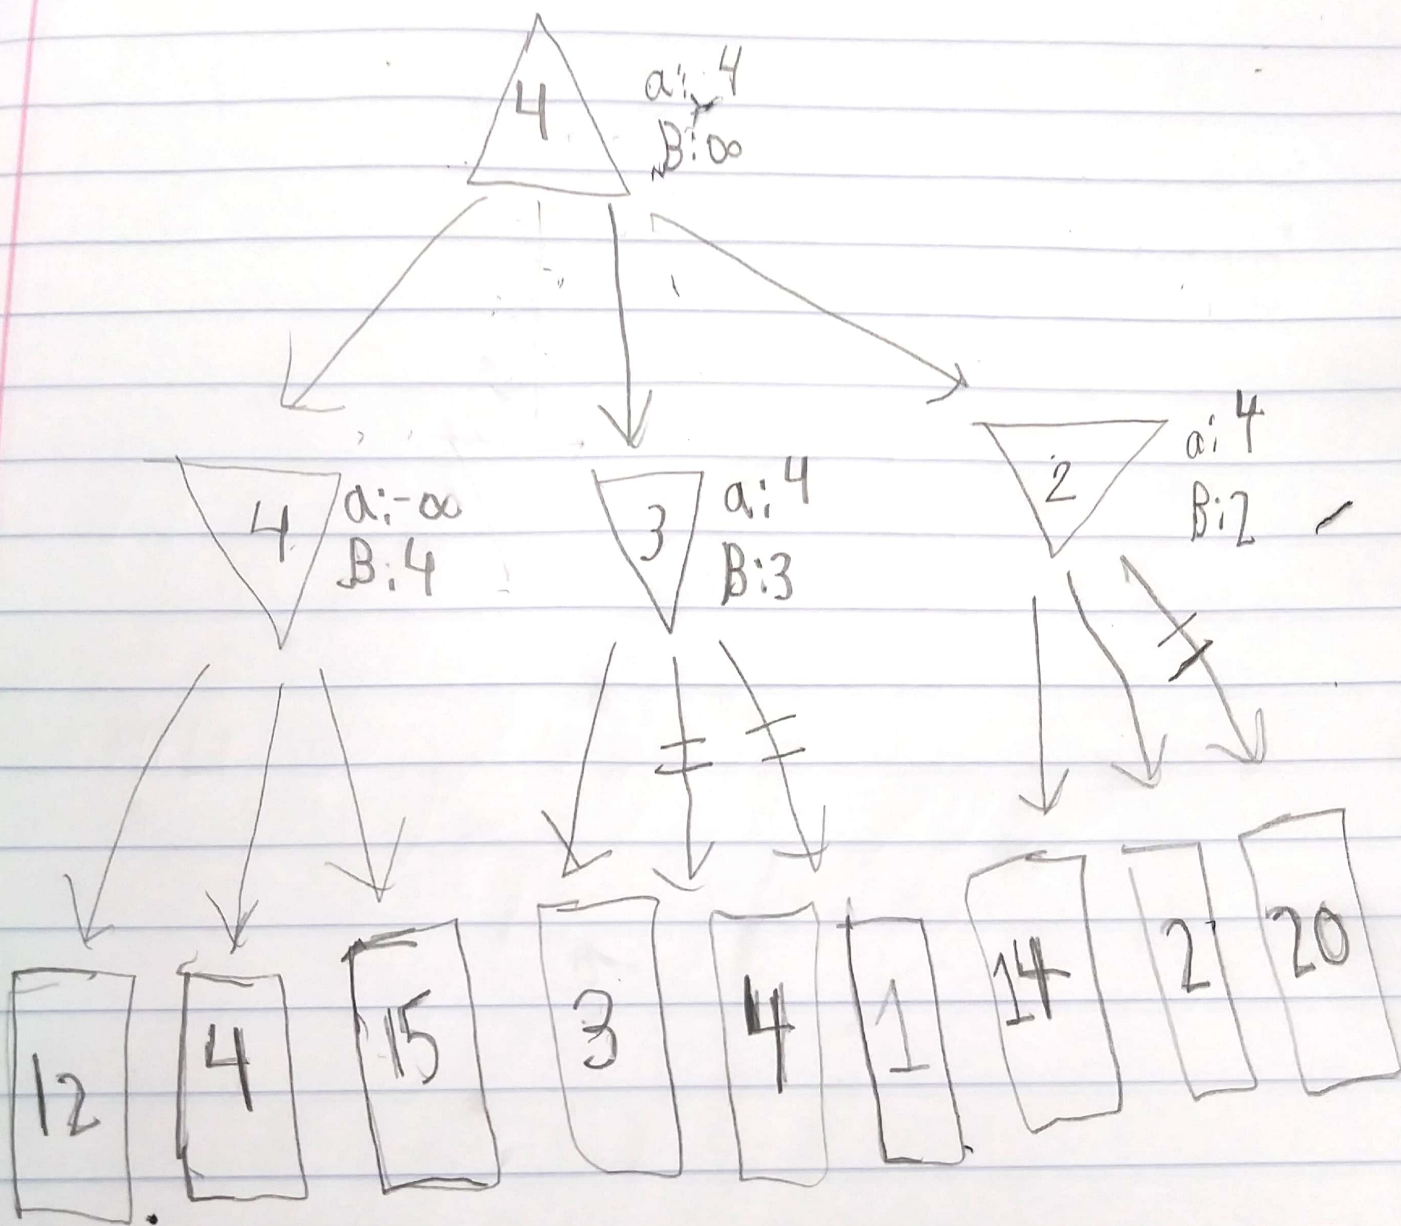 4
a: 4
B:∞
4
a:-∞
B:4
3
a:4
B:3
2
a:4
B:2
12
4
15
3
4
1
14
2
20